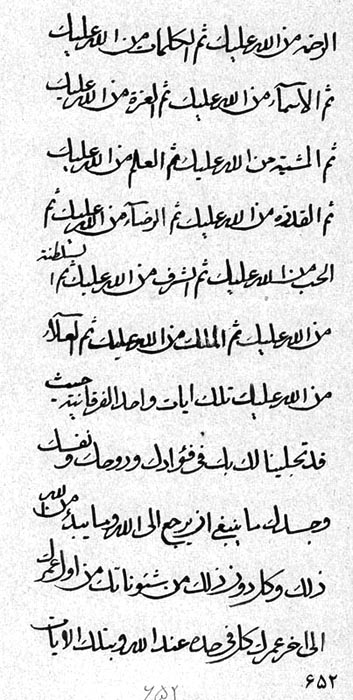 الرحمة من الله عليك ثم الكلمات من الله عليك
ثم الاسمآء من الله عليك ثم العزة من الله عليك
ثم المشية من الله عليك ثم العلم من الله عليك
ثم القدرة من الله عليك ثم الرضآء من الله عليك ثم
الحب من الله عليك ثم الشرف من الله عليك ثم السلطنة
من الله عليك ثم الملك من الله عليك ثم العلآء
من الله عليك تلك ايات واحد الفرقانية حيث
قد تجلينا لك بك في فؤادك وروحك ونفسك
وجسدك ما ينبغي ان يرجع الى الله وما يبدء من الله
ذلك وكل دون ذلك من شئوناتك من اول عمرك
الى اخر عمرك كل في حده عند الله وبتلك الايات
۶۵۲
۶۵۲